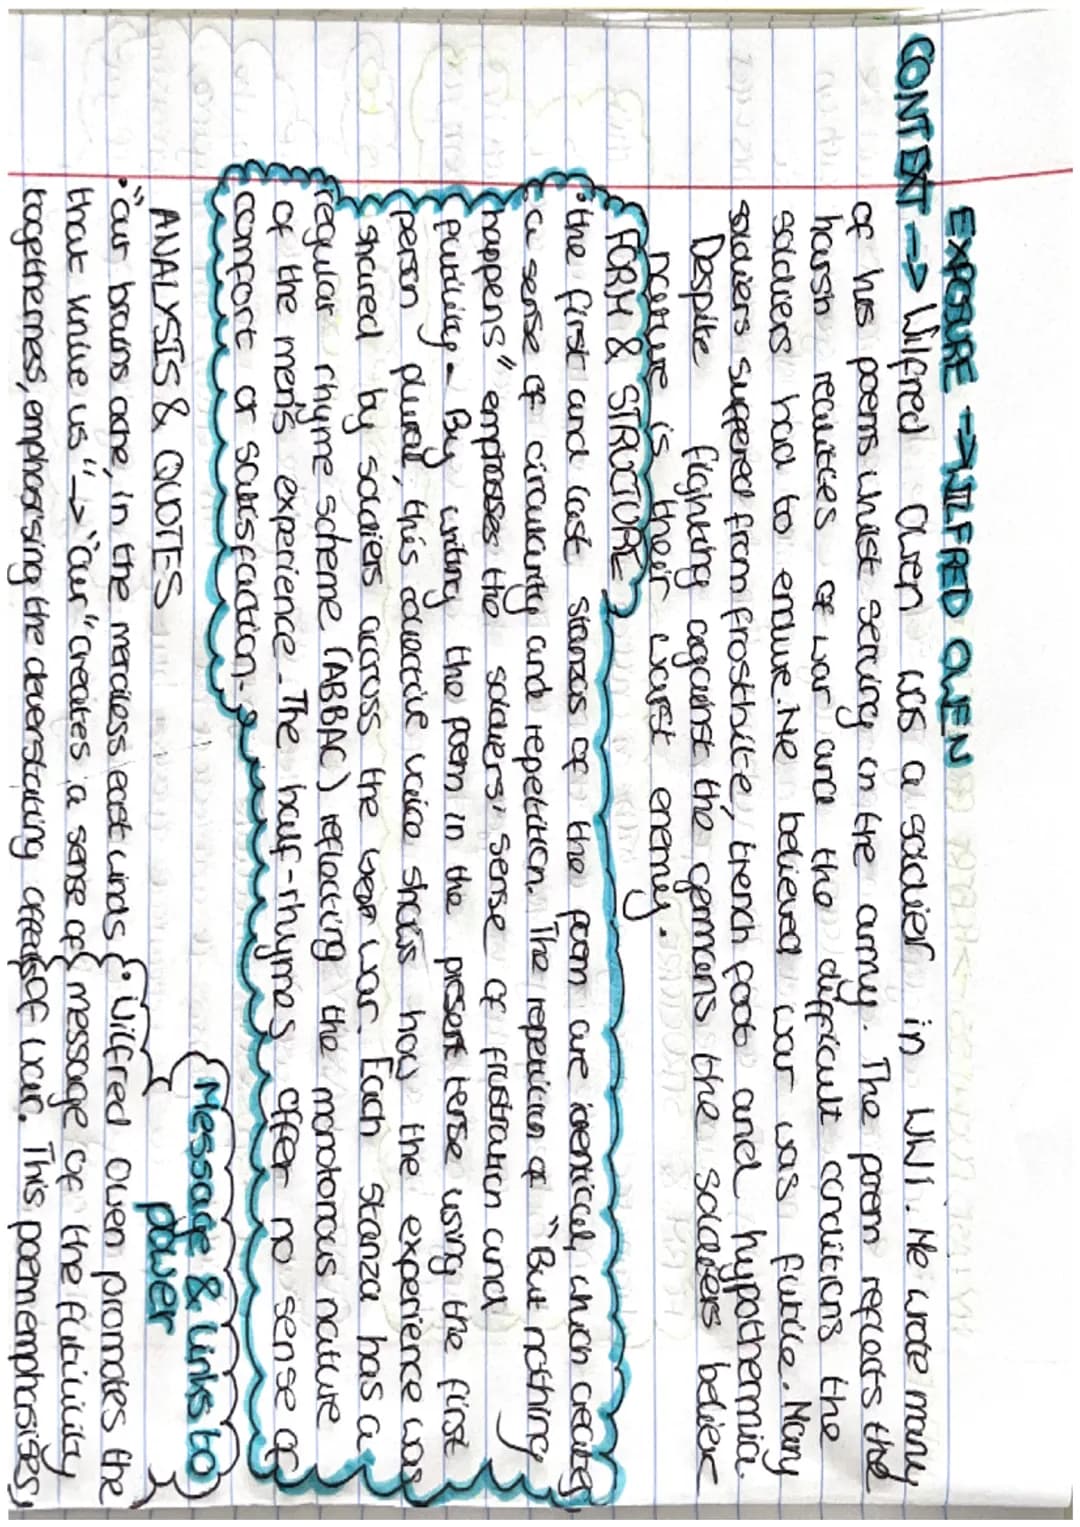 EXPOSURE → WILFRED OWEN
CONTEXT → Wilfred Owen was a soldier in WW1. He wrote many
of his poems whilst serving in the army. The poem reflects the
harsh realities of war and the difficult conditions the
soldiers had to endure. He believed war was futile. Many
soldiers suffered from frostbite, trench foot and hypothermia.
Despite fighting against the germans the soldiers believe
nature is their worst enemy.
FORM & STRUCTURE
• the first and last stanzas of the poem are identical, which creates
a sense of circularity and repetition. The repetition of "But nothing
happens" emphases the soldiers' sense of frustration and
futility. By writing the poem in the present tense using the first
person plural, this collective voice shows how the experience was
shared by soldiers across the war. Each stanza has a
regular rhyme scheme (ABBAC) reflecting the monotonous nature
of the men's experience. The half-rhymes offer no sense of
comfort or satisfaction.
ANALYSIS & QUOTES
• "our brains ache, in the merciless east winds
that knive us" → "our" creates a sense of
togetherness, emphasising the deverstating affects of war. This poem emphasises,
Message & links to
power
• Wilfred Owen promotes the
message of the futility